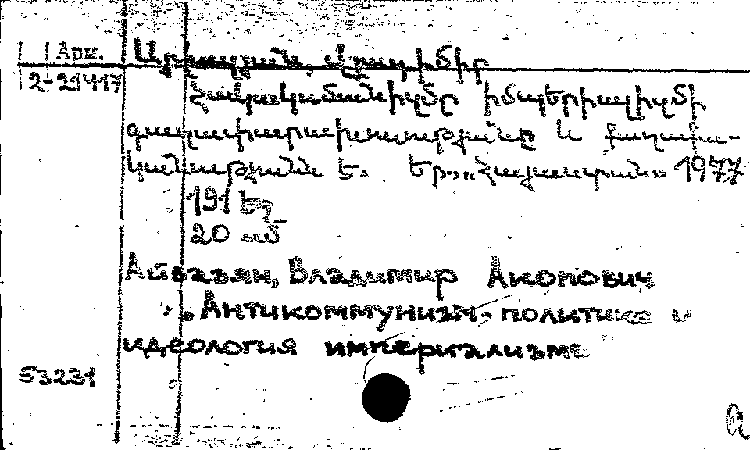 Арм.
2-21417
Այվազյան, Վլադիմիր
Հակակոմունիզմը իմպերիալիզմի
գաղափարախոսությունը և քաղաքա-
կանությունն է. Եր., „Հայաստան“ 1977
191 էջ
20 սմ
Айвазян, Владимир Акопович
„Антикоммунизм- политика и
идеология империализма
53231
а